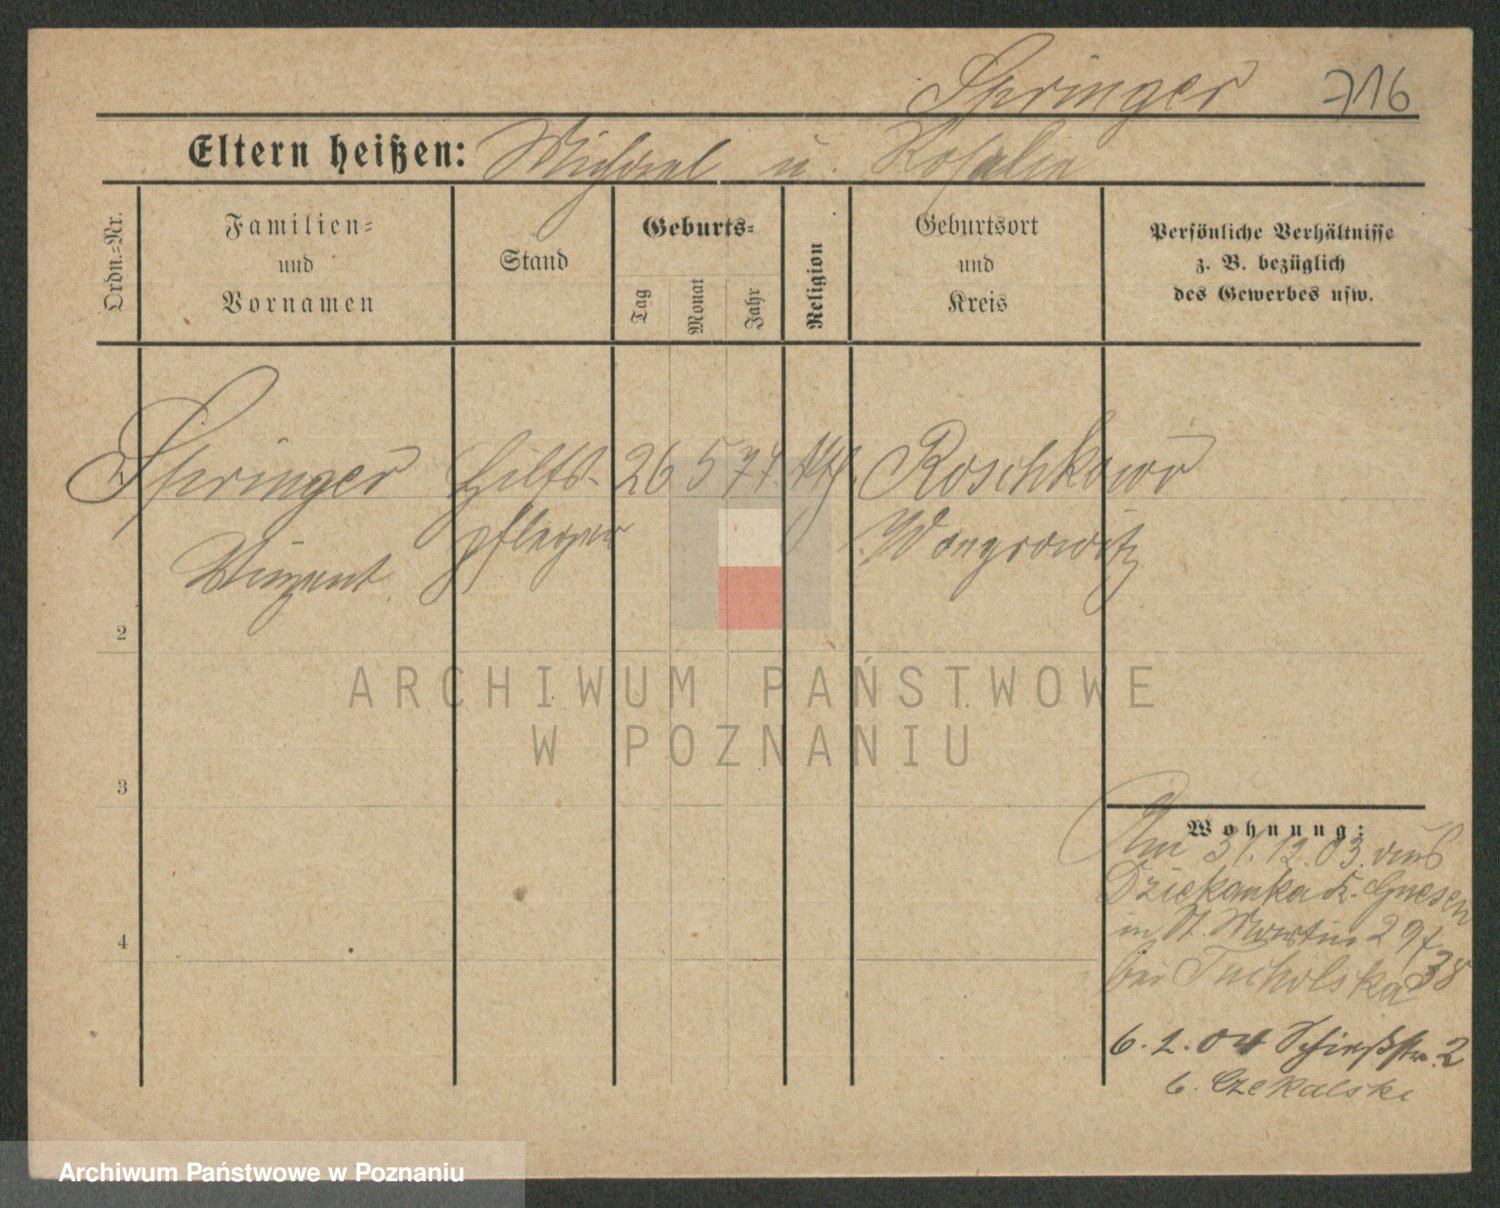 Springer 716
Eltern heißen: Michael u. Rosalie
Ordn.-Nr.
Familien-
und
Vornamen
Stand
Geburts-
Tag
Monat
Jahr
Religion
Geburtsort
und
Kreis
Persönliche Verhältnisse
z. B. bezüglich
des Gewerbes usw.
1 Springer Hilfs- 26 5 77 kth. Roschkowo
Vinzent pfleger Wongrowitz
2
3
4
Wohnung:
Am 31.12.03. aus
Dziekanka K. Gnesen
in St. Martin 29/
bei Tucholska 38
6. 2. 04 Schießstr. 2
b. Czekalski
ARCHIWUM PAŃSTWOWE
W POZNANIU
Archiwum Państwowe w Poznaniu